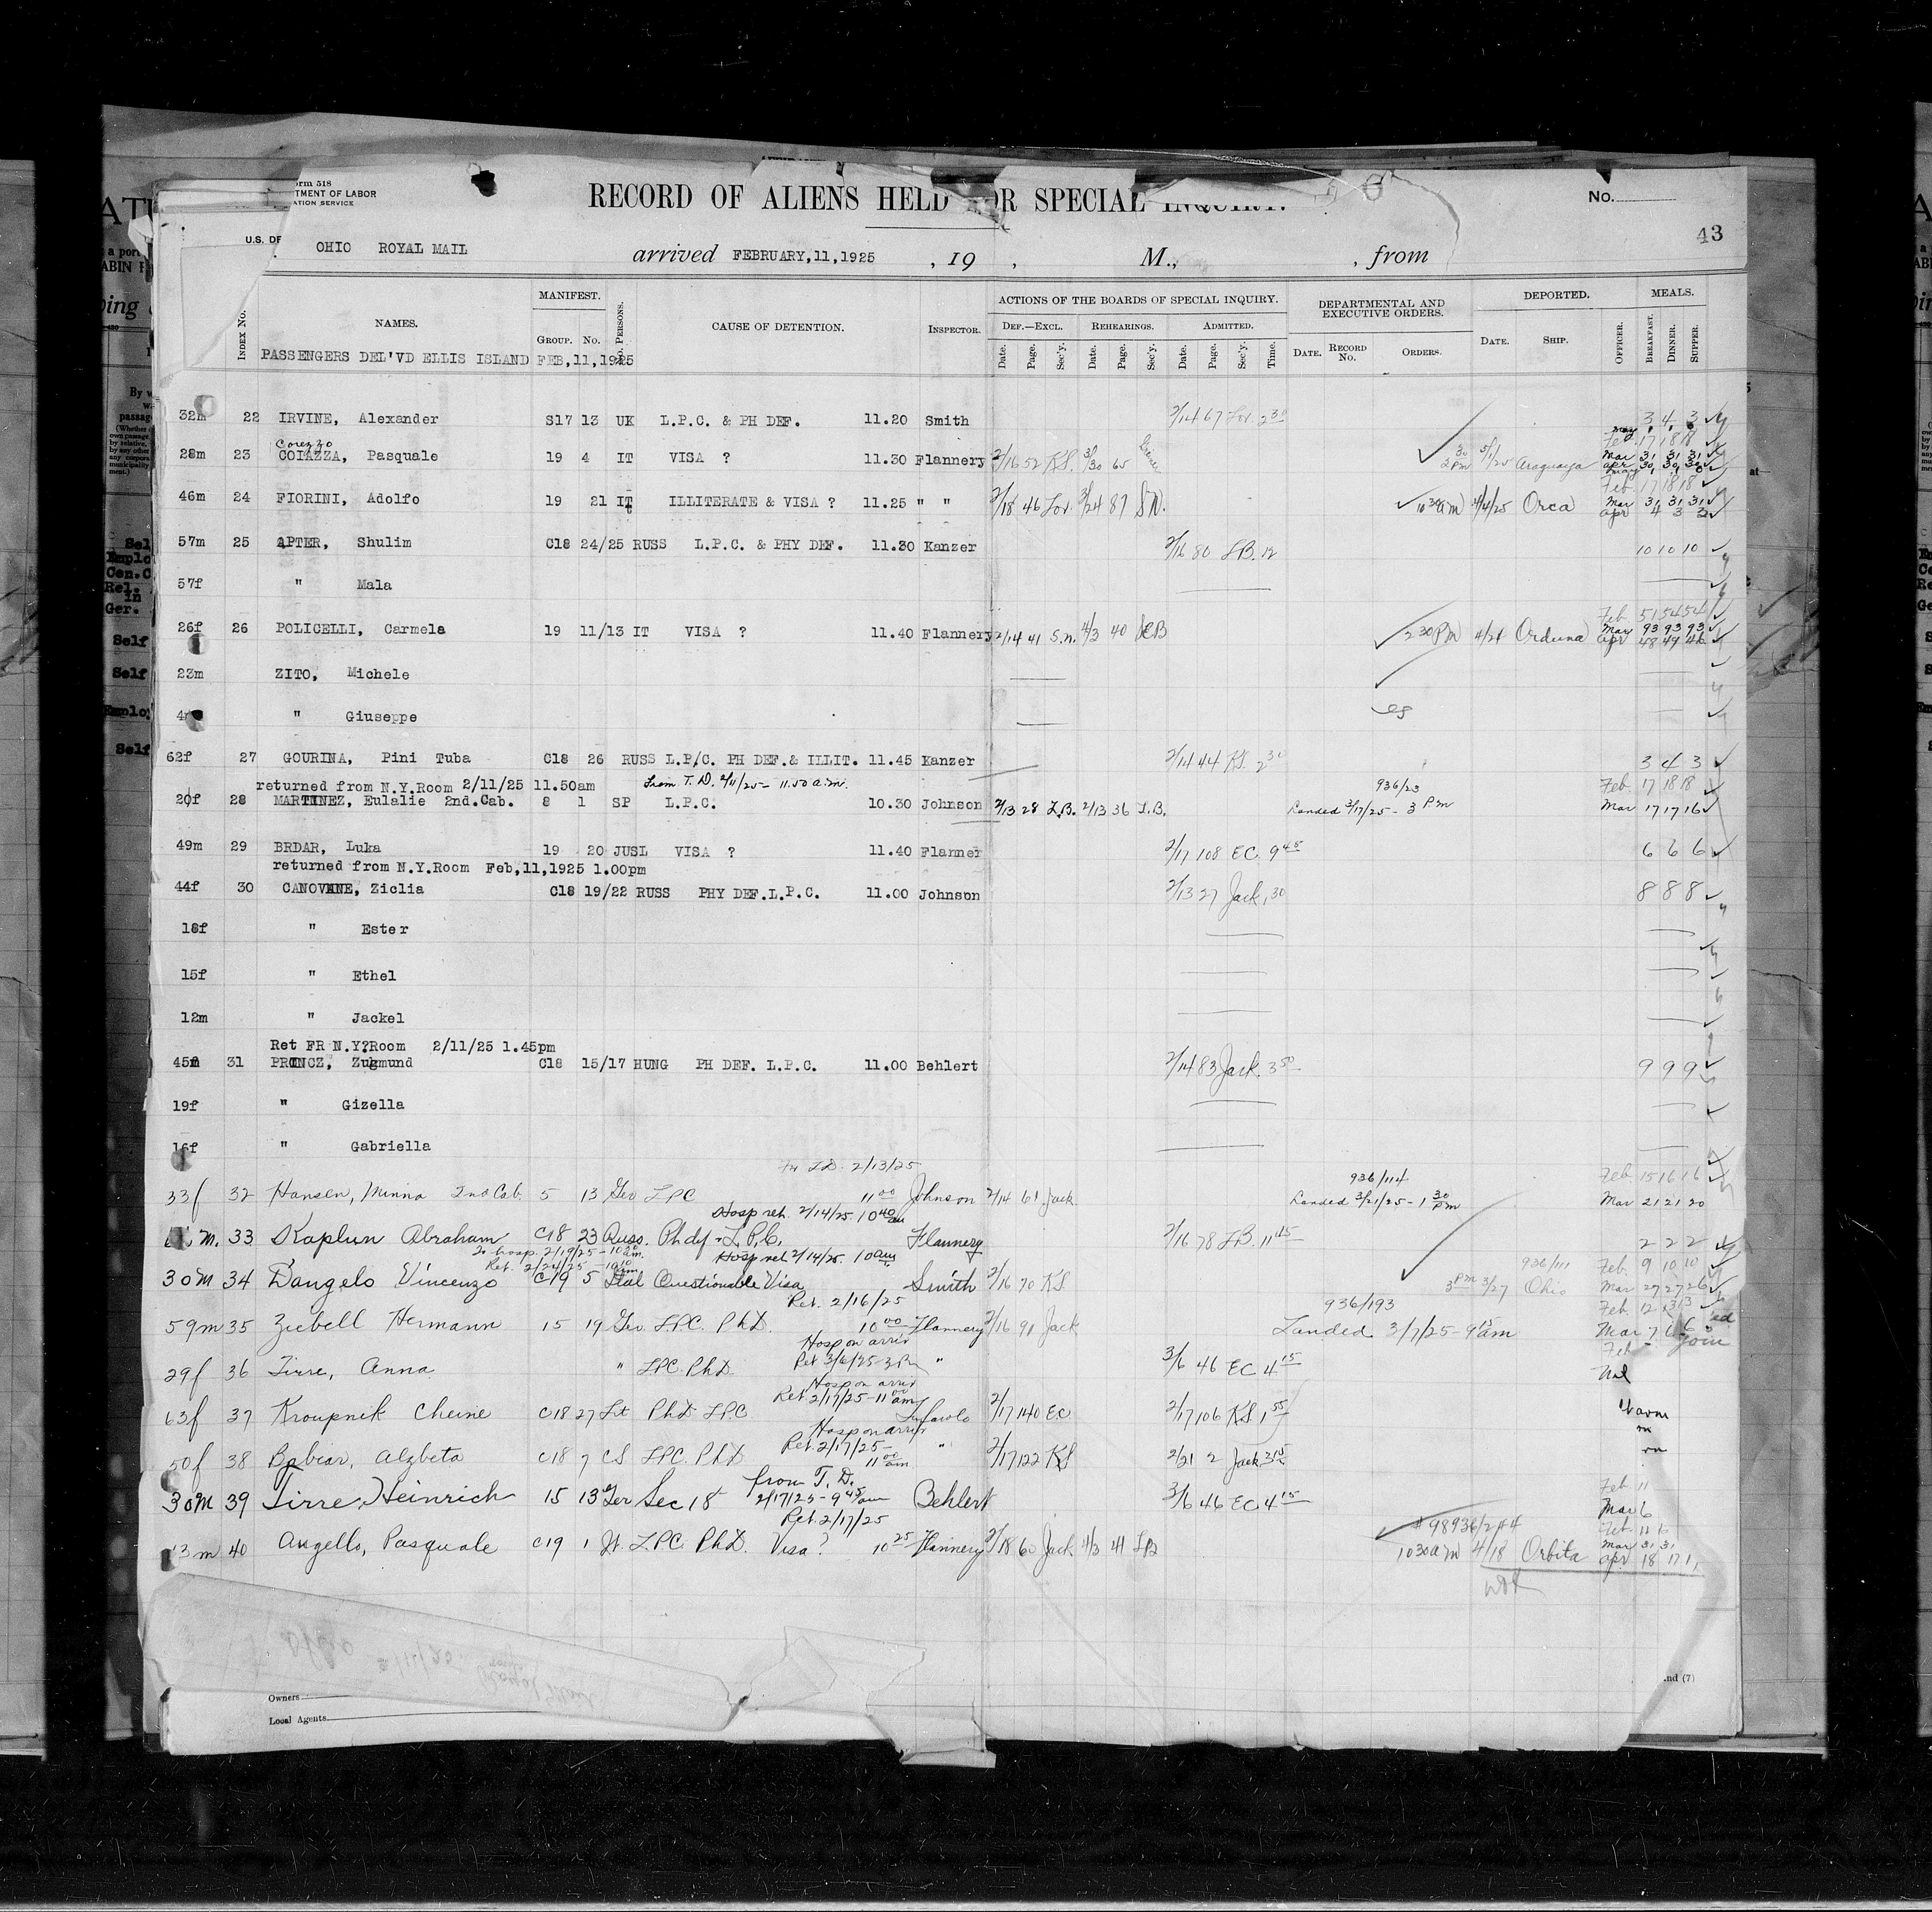 orm 518
TMENT OF LABOR
ATION SERVICE
RECORD OF ALIENS HELD FOR SPECIAL INQUIRY.
No.
43
U.S. DE
OHIO ROYAL MAIL arrived FEBRUARY,11,1925 , 19 , M., , from
INDEX No. NAMES. MANIFEST. GROUP. No. No. PERSONS. CAUSE OF DETENTION. INSPECTOR. ACTIONS OF THE BOARDS OF SPECIAL INQUIRY. DEPARTMENTAL AND EXECUTIVE ORDERS. DEPORTED. MEALS.
DEF.—EXCL. REHEARINGS. ADMITTED.
Date. Page. Sec'y. Date. Page. Sec'y. Date. Page. Sec'y. Time. DATE. RECORD No. ORDERS. DATE. SHIP. OFFICER. BREAKFAST. DINNER. SUPPER.
PASSENGERS DEL'VD ELLIS ISLAND FEB,11,1925
32m 22 IRVINE, Alexander S17 13 UK L.P.C. & PH DEF. 11.20 Smith 2/14 67 Lov. 2 30 3 4 3
Corezzo
28m 23 COIAZZA, Pasquale 19 4 IT VISA ? 11.30 Flannery 2/16 52 K.S. 3/30 65 2 30 pm 5/1/25 Araguaya Feb 17 18 18 Mar 31 31 31 Apr 30 30 30
46m 24 FIORINI, Adolfo 19 21 IT ILLITERATE & VISA ? 11.25 " " 2/18 46 Lov. 3/24 87 S.N. 10 30 am 4/4/25 Orca Feb. 17 18 18 Mar 31 31 31 Apr 4 3 3
57m 25 APTER, Shulim C18 24/25 RUSS L.P.C. & PHY DEF. 11.30 Kanzer 2/16 80 L.B. 12 10 10 10
57f " Mala
26f 26 POLICELLI, Carmela 19 11/13 IT VISA ? 11.40 Flannery 2/14 41 S.N. 4/3 40 2 30 PM 4/21 Orduna Feb 51 54 54 Mar 93 93 93 Apr 48 49 46
23m ZITO, Michele
4 " Giuseppe
62f 27 GOURINA, Pini Tuba C18 26 RUSS L.P/C. PH DEF.& ILLIT. 11.45 Kanzer 2/14 44 K.S. 2 30 3 4 3
returned from N.Y.Room 2/11/25 11.50am From T. D. 2/11/25 - 11.50 a.m. 936/23 Feb. 17 18 18
20f 28 MARTINEZ, Eulalie 2nd.Cab. 8 1 SP L.P.C. 10.30 Johnson 2/13 28 L.B. 2/13 36 L.B. Landed 3/17/25 - 3 P.m Mar 17 17 16
49m 29 BRDAR, Luka 19 20 JUSL VISA ? 11.40 Flanner 2/17 108 EC. 9 45 6 6 6
returned from N.Y.Room Feb,11,1925 1.00pm
44f 30 CANOVANE, Ziclia C18 19/22 RUSS PHY DEF.L.P.C. 11.00 Johnson 2/13 27 Jack 1 30 8 8 8
18f " Ester
15f " Ethel
12m " Jackel
Ret FR N.Y?Room 2/11/25 1.45pm
45m 31 PRINCZ, Zugmund C18 15/17 HUNG PH DEF. L.P.C. 11.00 Behlert 2/14 83 Jack. 3 50 9 9 9
19f " Gizella
16f " Gabriella
Fr T.D. 2/13/25 936/114 Feb 15 16 16
33f 32 Hansen, Minna 2nd Cab. 5 13 Ger LPC 11 00 Johnson 2/14 61 Jack Landed 3/21/25 - 1 30 pm Mar 21 21 20
Hosp ret. 2/14/25. 10 40 am
M. 33 Kaplun Abraham C18 23 Russ. Ph def - L.P.C. Flannery 2/16 78 L.B. 11 45 2 2 2
To hosp. 2/19/25 - 10 20 am. Hosp ret 2/14/25. 10 am
Ret. 2/24/25 - 10 10 am 936/111 Feb. 9 10 10
30M 34 D'angelo Vincenzo C19 5 Ital Questionable Visa Smith 2/16 70 KS 3 PM 3/27 Ohio Mar 27 27 26
Ret. 2/16/25 936/193 Feb 12 13 13
59m 35 Ziebell Hermann 15 19 Ger. L.P.C. PhD. 10 00 Flannery 2/16 91 Jack Landed 3/7/25 - 9 am Mar 7 6 6
Hosp on arriv
Ret 3/6/25 - 3 Pm
29f 36 Tirre, Anna " LPC. PhD. " 3/6 46 EC 4 15
Hosp on arriv
Ret. 2/17/25 - 11 00 am
63f 37 Kroupnik Cheine C18 27 Lit PhD LPC 2/17 140 EC 2/17 106 KS 1 55
Hosp on arriv
Ret. 2/17/25 - 11 00 am
50f 38 Alzbeta C18 7 CS LPC. PhD " 2/17 122 KS 2/21 2 Jack 3 15
from T. D.
2/17/25 - 9 45 am
30M 39 Tirre, Heinrich 15 13 Ger Sec 18 Behlert 3/6 46 EC 4 15 Feb 11 Mar 6
Ret. 2/17/25
3m 40 Augello, Pasquale C19 1 It. L.P.C. PhD. Visa? 10 25 Flannery 2/18 60 Jack 4/3 41 LB 10 30 am 4/18 Orbita Mar 31 31 Apr 18 17
Owners
Local Agents
nd (7)